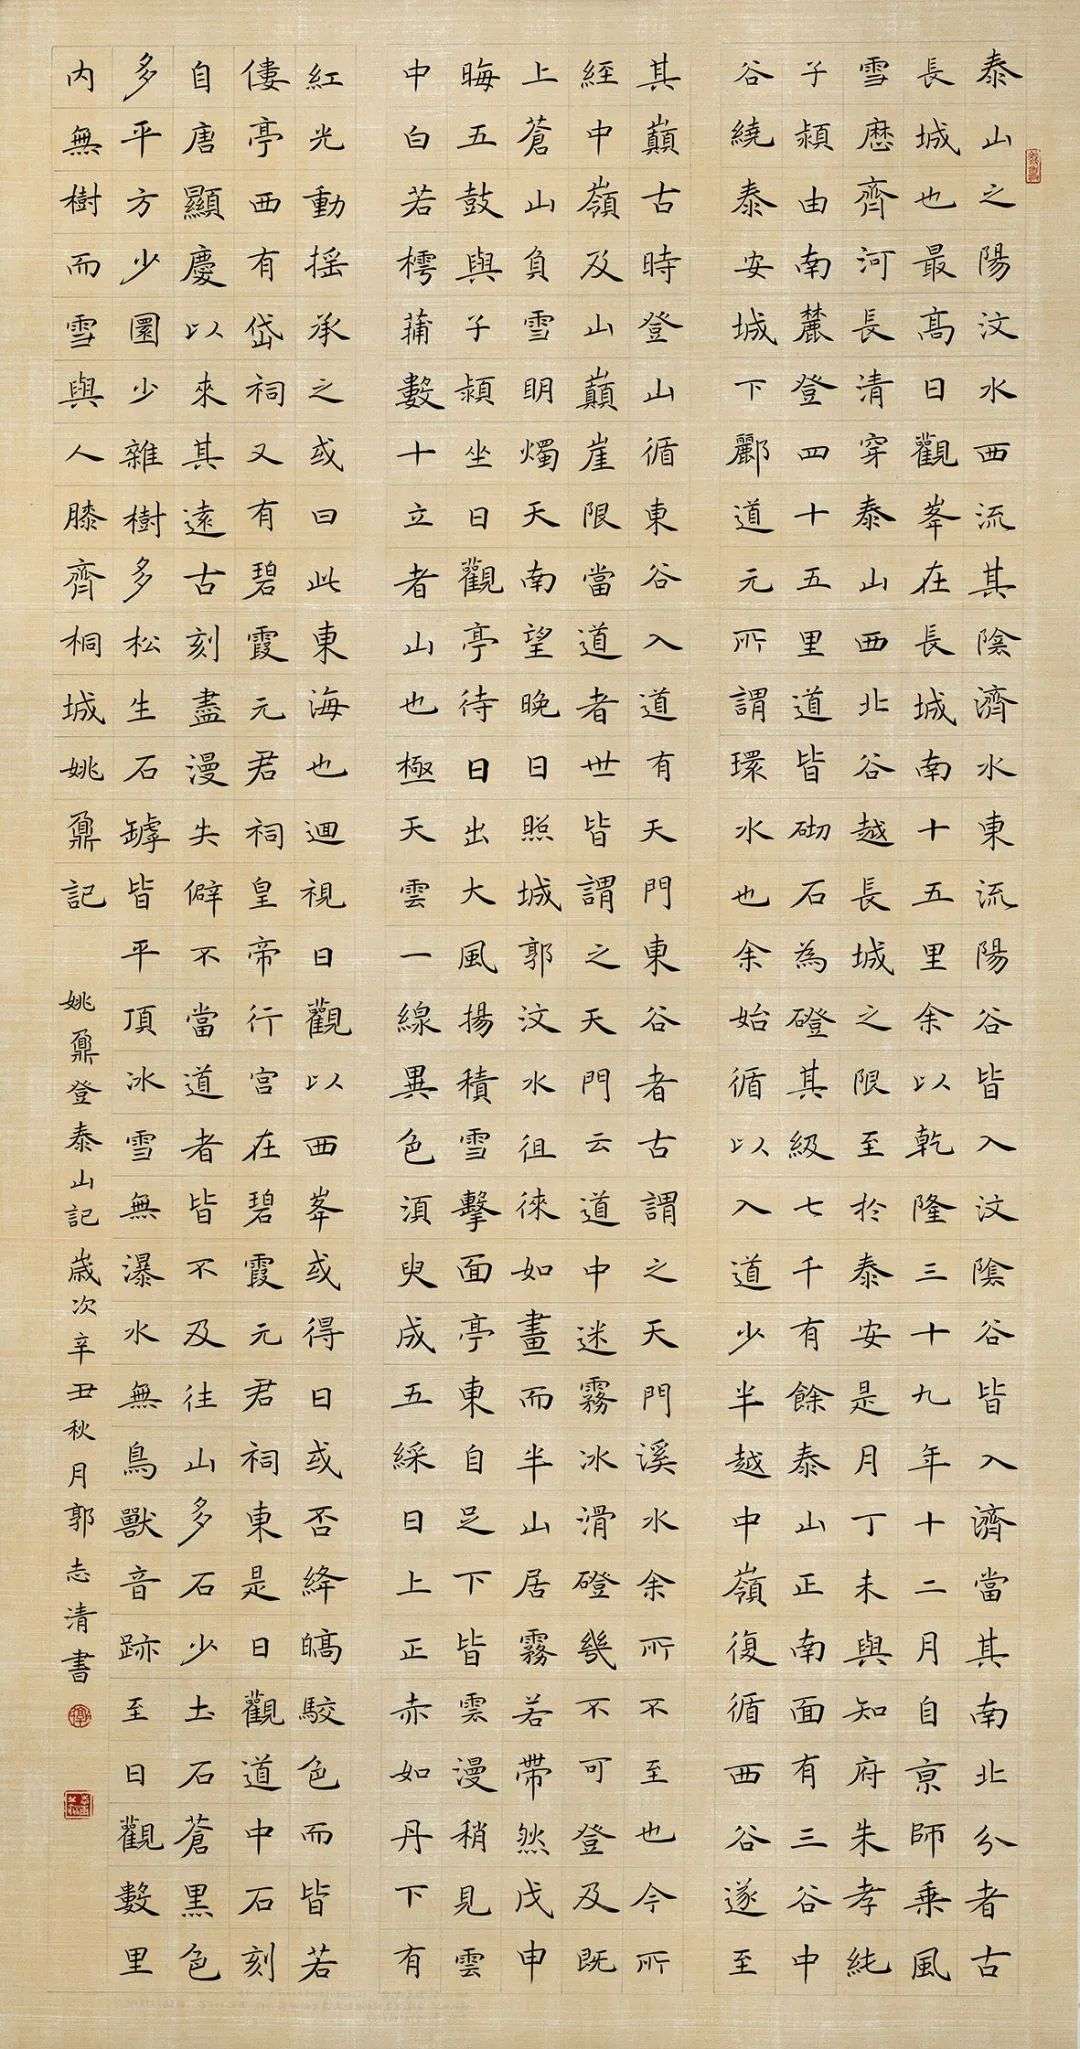 泰山之陽汶水西流其陰濟水東流陽谷皆入汶陰谷皆入濟當其南北分者古
長城也最高日觀峯在長城南十五里余以乾隆三十九年十二月自京師乘風
雪歷齊河長清穿泰山西北谷越長城之限至於泰安是月丁未與知府朱孝純
子潁由南麓登四十五里道皆砌石為磴其級七千有餘泰山正南面有三谷中
谷繞泰安城下酈道元所謂環水也余始循以入道少半越中嶺復循西谷遂至
其巔古時登山循東谷入道有天門東谷者古謂之天門溪水余所不至也今所
經中嶺及山巔崖限當道者世皆謂之天門云道中迷霧冰滑磴幾不可登及既
上蒼山負雪明燭天南望晚日照城郭汶水徂徠如畫而半山居霧若帶然戊申
晦五鼓與子潁坐日觀亭待日出大風揚積雪擊面亭東自足下皆雲漫稍見雲
中白若樗蒱數十立者山也極天雲一線異色須臾成五綵日上正赤如丹下有
紅光動搖承之或曰此東海也迴視日觀以西峯或得日或否絳皜駮色而皆若
僂亭西有岱祠又有碧霞元君祠皇帝行宮在碧霞元君祠東是日觀道中石刻
自唐顯慶以來其遠古刻盡漫失僻不當道者皆不及往山多石少土石蒼黑色
多平方少圜少雜樹多松生石罅皆平頂冰雪無瀑水無鳥獸音跡至日觀數里
內無樹而雪與人膝齊桐城姚鼐記
姚鼐登泰山記 歲次辛丑秋月郭志清書